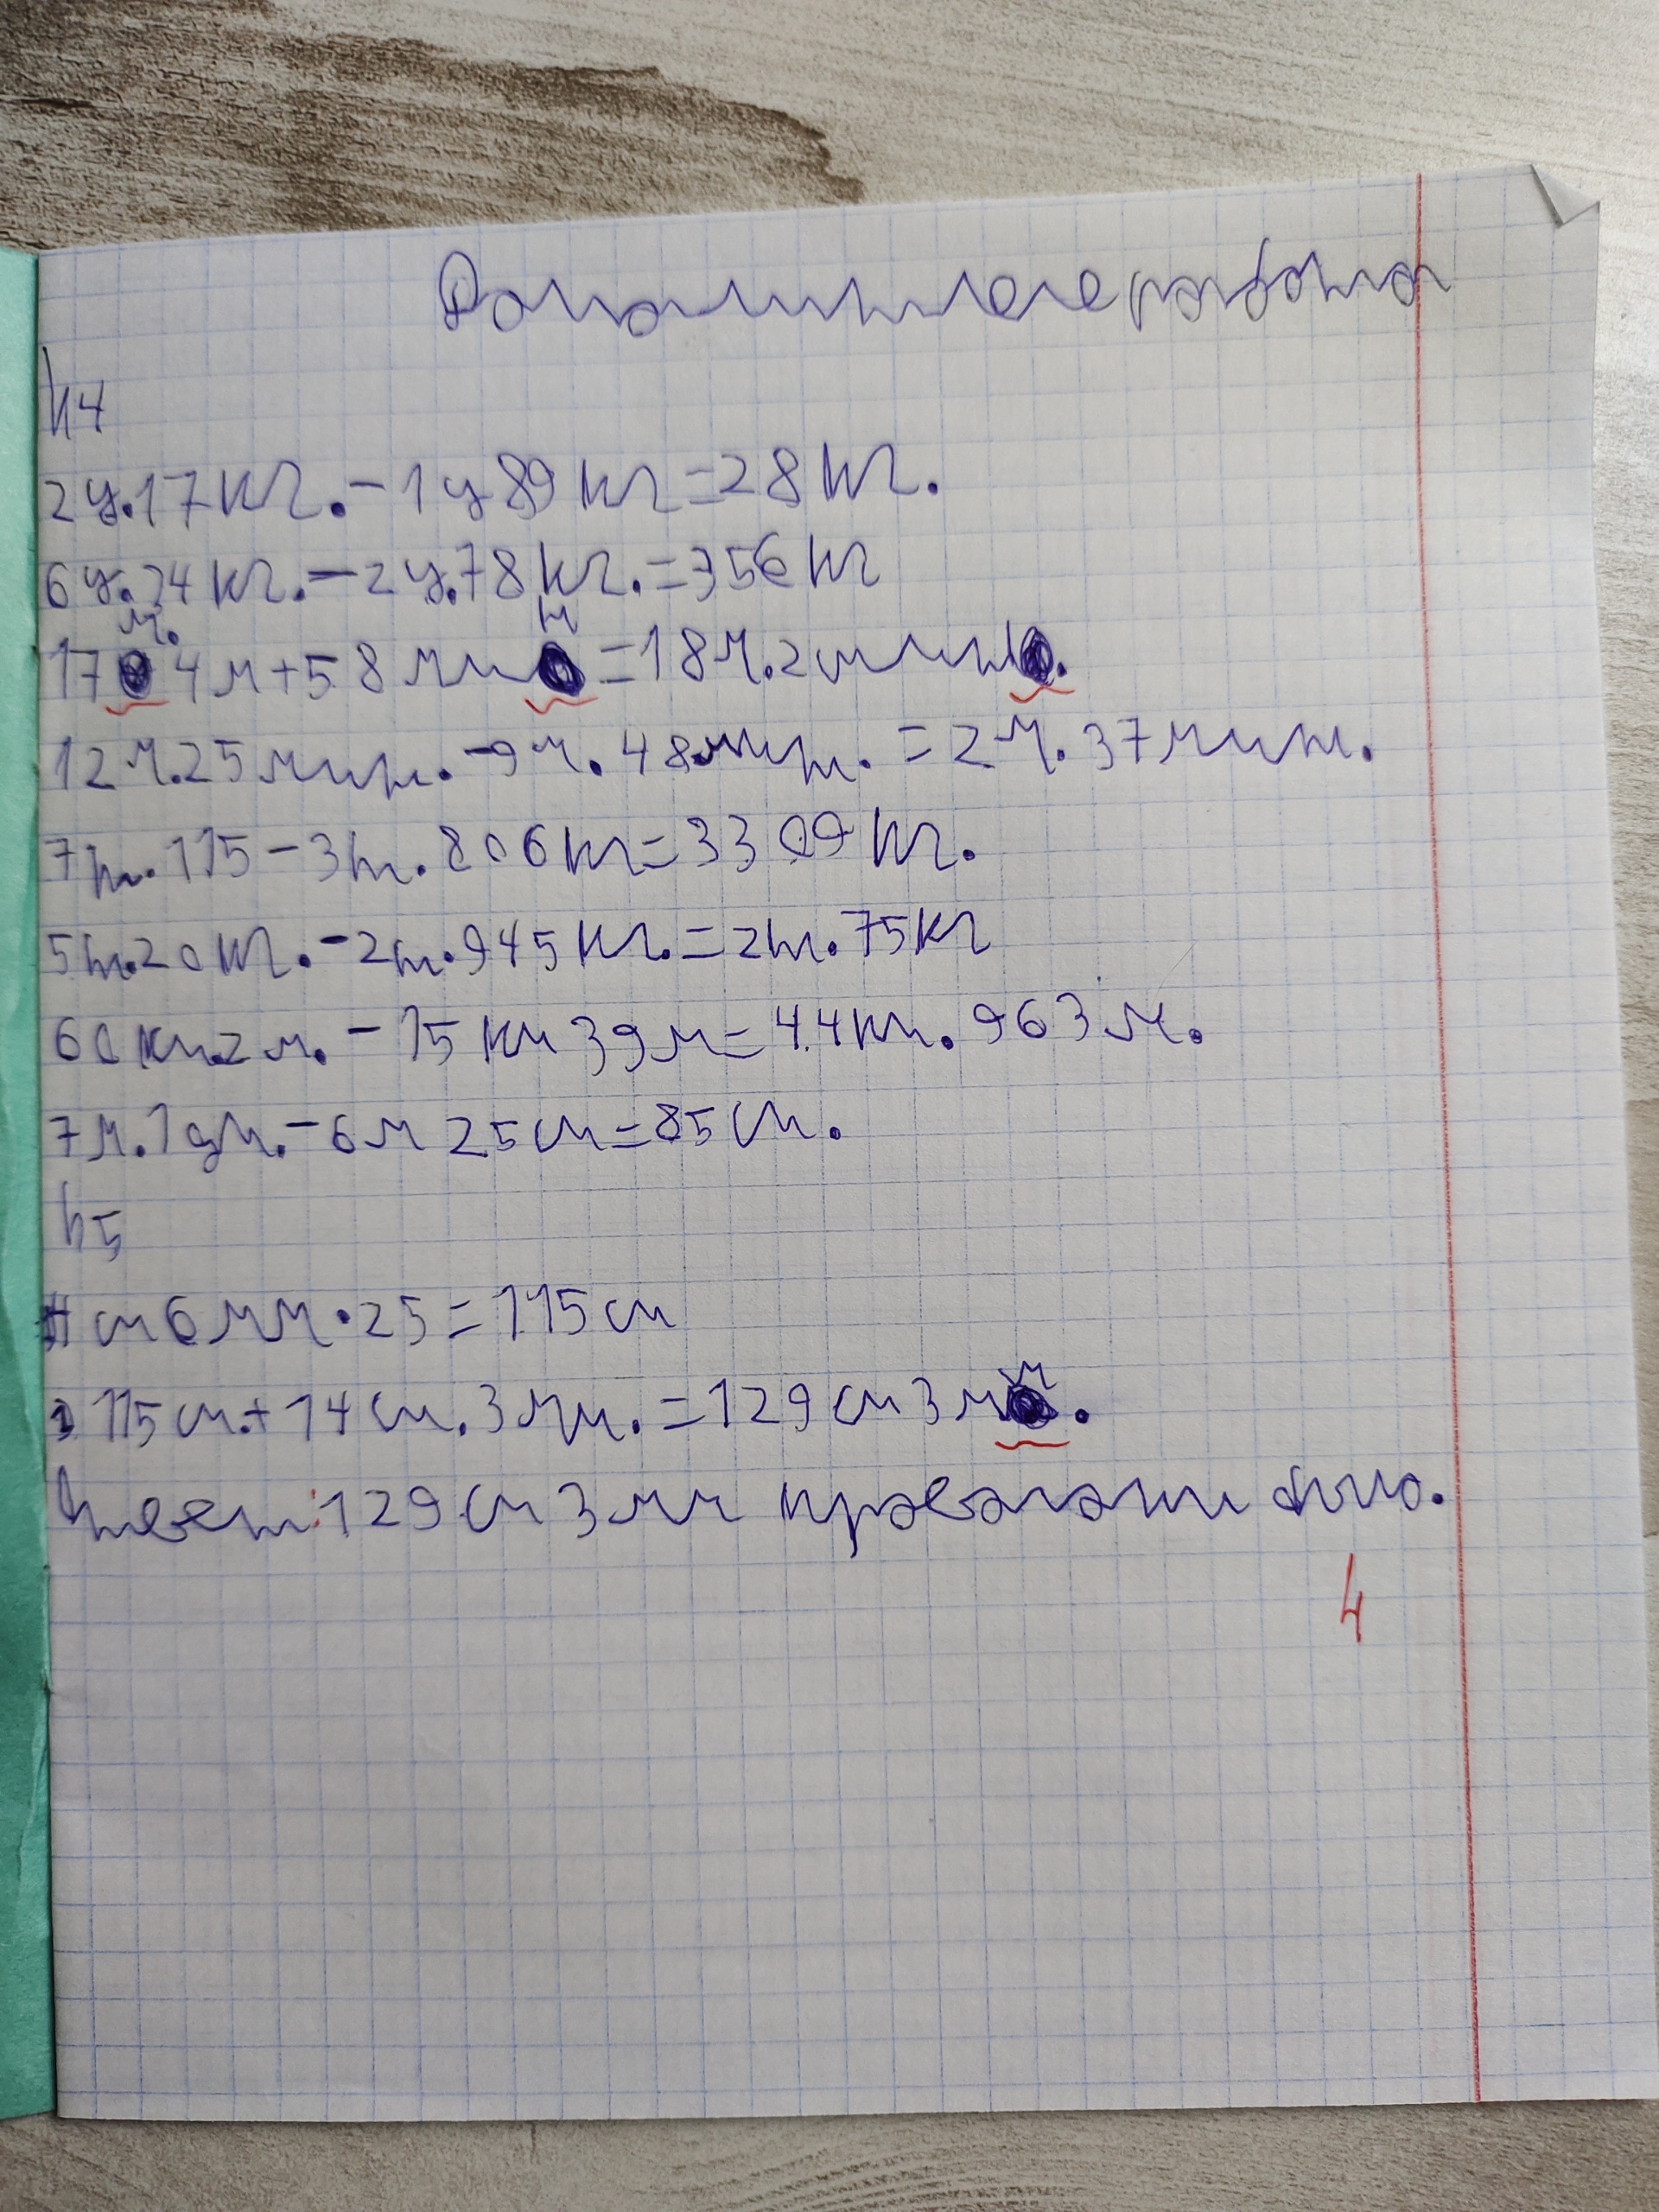 Домашнее работа
N4
2ц.17кг.-1ц89кг=28кг.
6ц.34кг.-2ц.78кг.=356кг
17ч.4м+58мин=18ч.2мин.
12ч.25мин.-9ч.48мин.=2ч.37мин.
7т.115-3т.806кг=3309кг.
5т.20кг.-2т.945кг.=2т.75кг
60км.2м.-15км39м=44км.963м.
7м.1дм.-6м25см=85см.
N5
4см6мм·25=115см
115см.+14см.3мм.=129см3мм.
Ответ:129см3мм провалоти было.
4